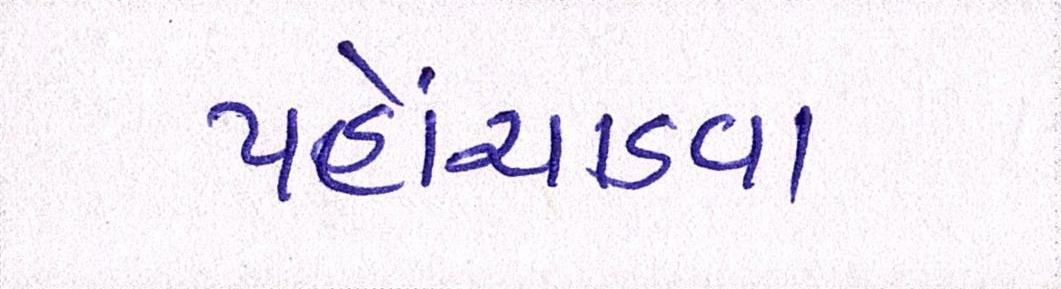 પહોંચાડવા